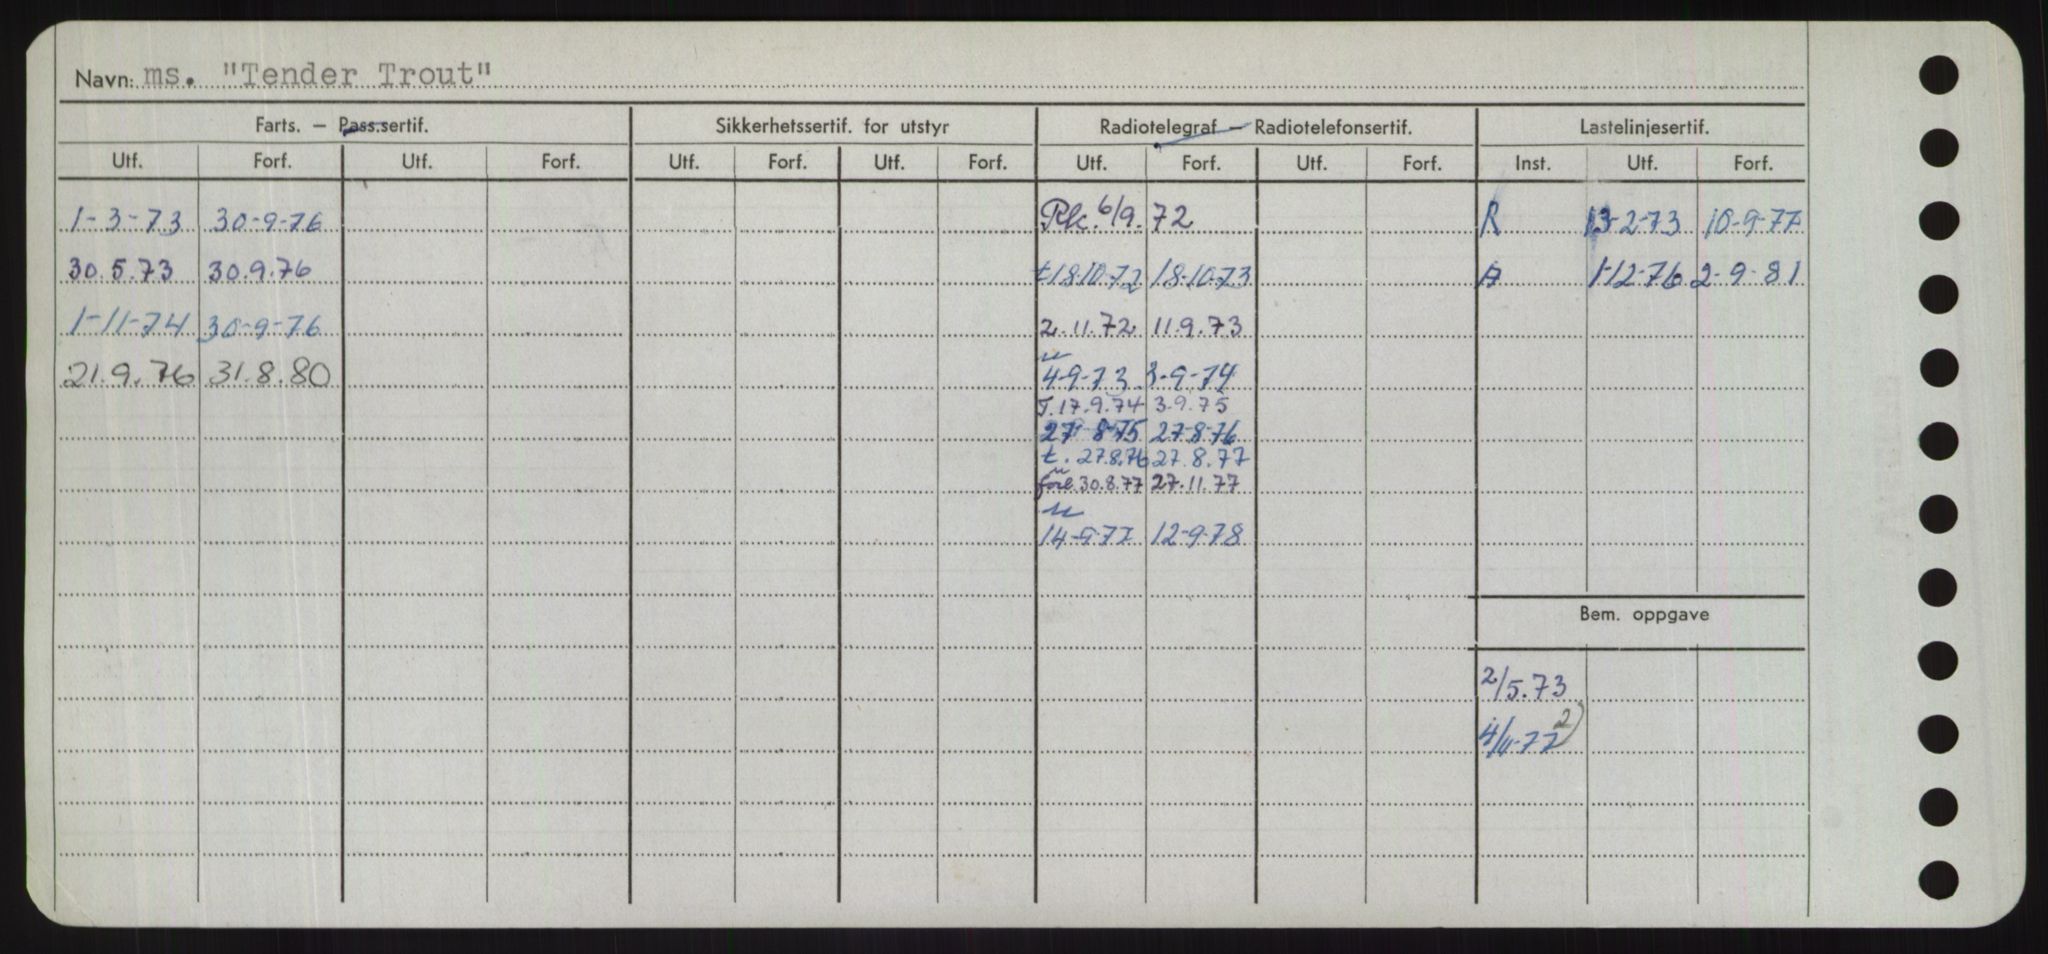 Navn: ms. "Tender Trout"
Farts. – Pass.sertif. Sikkerhetssertif. for utstyr Radiotelegraf – Radiotelefonsertif. Lastelinjesertif.
Utf. Forf. Utf. Forf. Utf. Forf. Utf. Forf. Utf. Forf. Utf. Forf. Inst. Utf. Forf.
1-3-73 30-9-76 Rk. 6/9.72 R 13-2-73 10-9-77
30.5.73 30.9.76 t18-10-72 18-10-73 A 1-12-76 2-9-81
1-11-74 30-9-76 2.11.72 11.9.73
u
21.9.76 31.8.80 4-9-73 3-9-74
T.17.9.74 3.9.75
27-8-75 27-8-76
t. 27.8.76 27.8.77
30.8.77 27.11.77
u
14-9-77 12-9-78
Bem. oppgave
2/5.73
4/11-77 2)